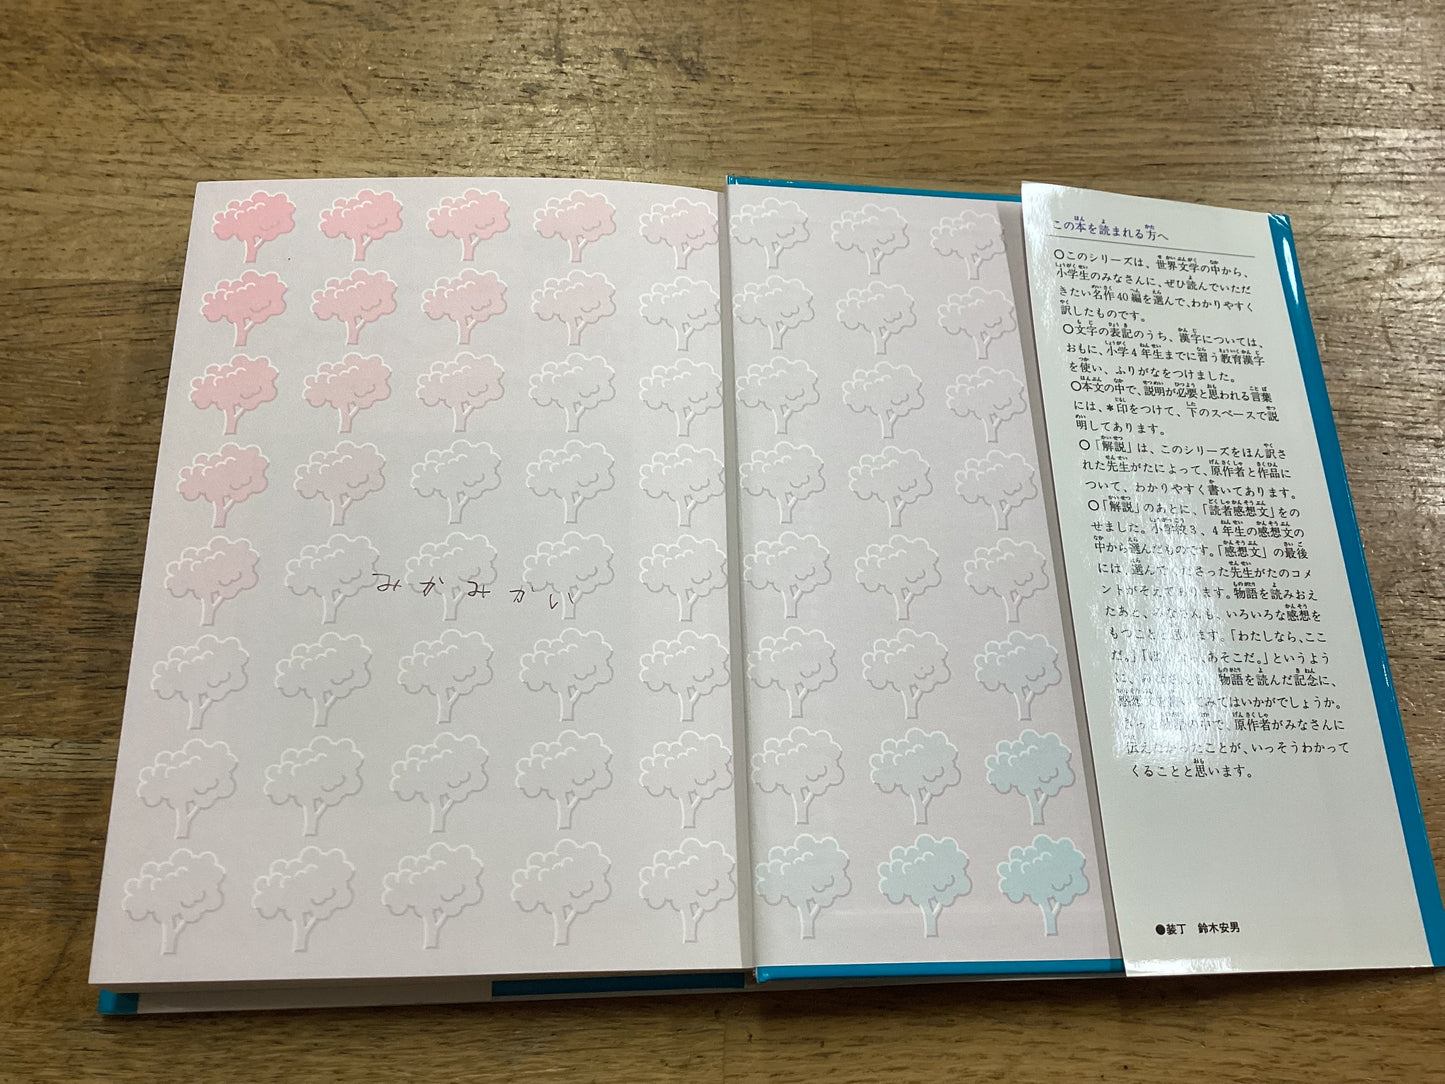 みかみかい
この本を読まれる方へ
○このシリーズは、世界文学の中から、
小学生のみなさんに、ぜひ読んでいただ
きたい名作40編を選んで、わかりやすく
訳したものです。
○文字の表記のうち、漢字については、
おもに、小学4年生までに習う教育漢字
を使い、ふりがなをつけました。
○本文の中で、説明が必要と思われる言葉
には、*印をつけて、下のスペースで説
明してあります。
○「解説」は、このシリーズをほん訳さ
れた先生がたによって、原作者と作品に
ついて、わかりやすく書いてあります。
○「解説」のあとに、「読者感想文」をの
せました。小学校3、4年生の感想文の
中から選んだものです。「感想文」の最後
には、選んでくださった先生がたのコメ
ントがそえてあります。物語を読みおえ
たあと、みなさんも、いろいろな感想を
もつことと思います。「わたしなら、ここ
だ。」「ぼくなら、あそこだ。」というよう
に、みなさんも、物語を読んだ記念に、
感想文を書いてみてはいかがでしょうか。
の中で、原作者がみなさんに
伝えたかったことが、いっそうわかって
くることと思います。
●装丁 鈴木安男